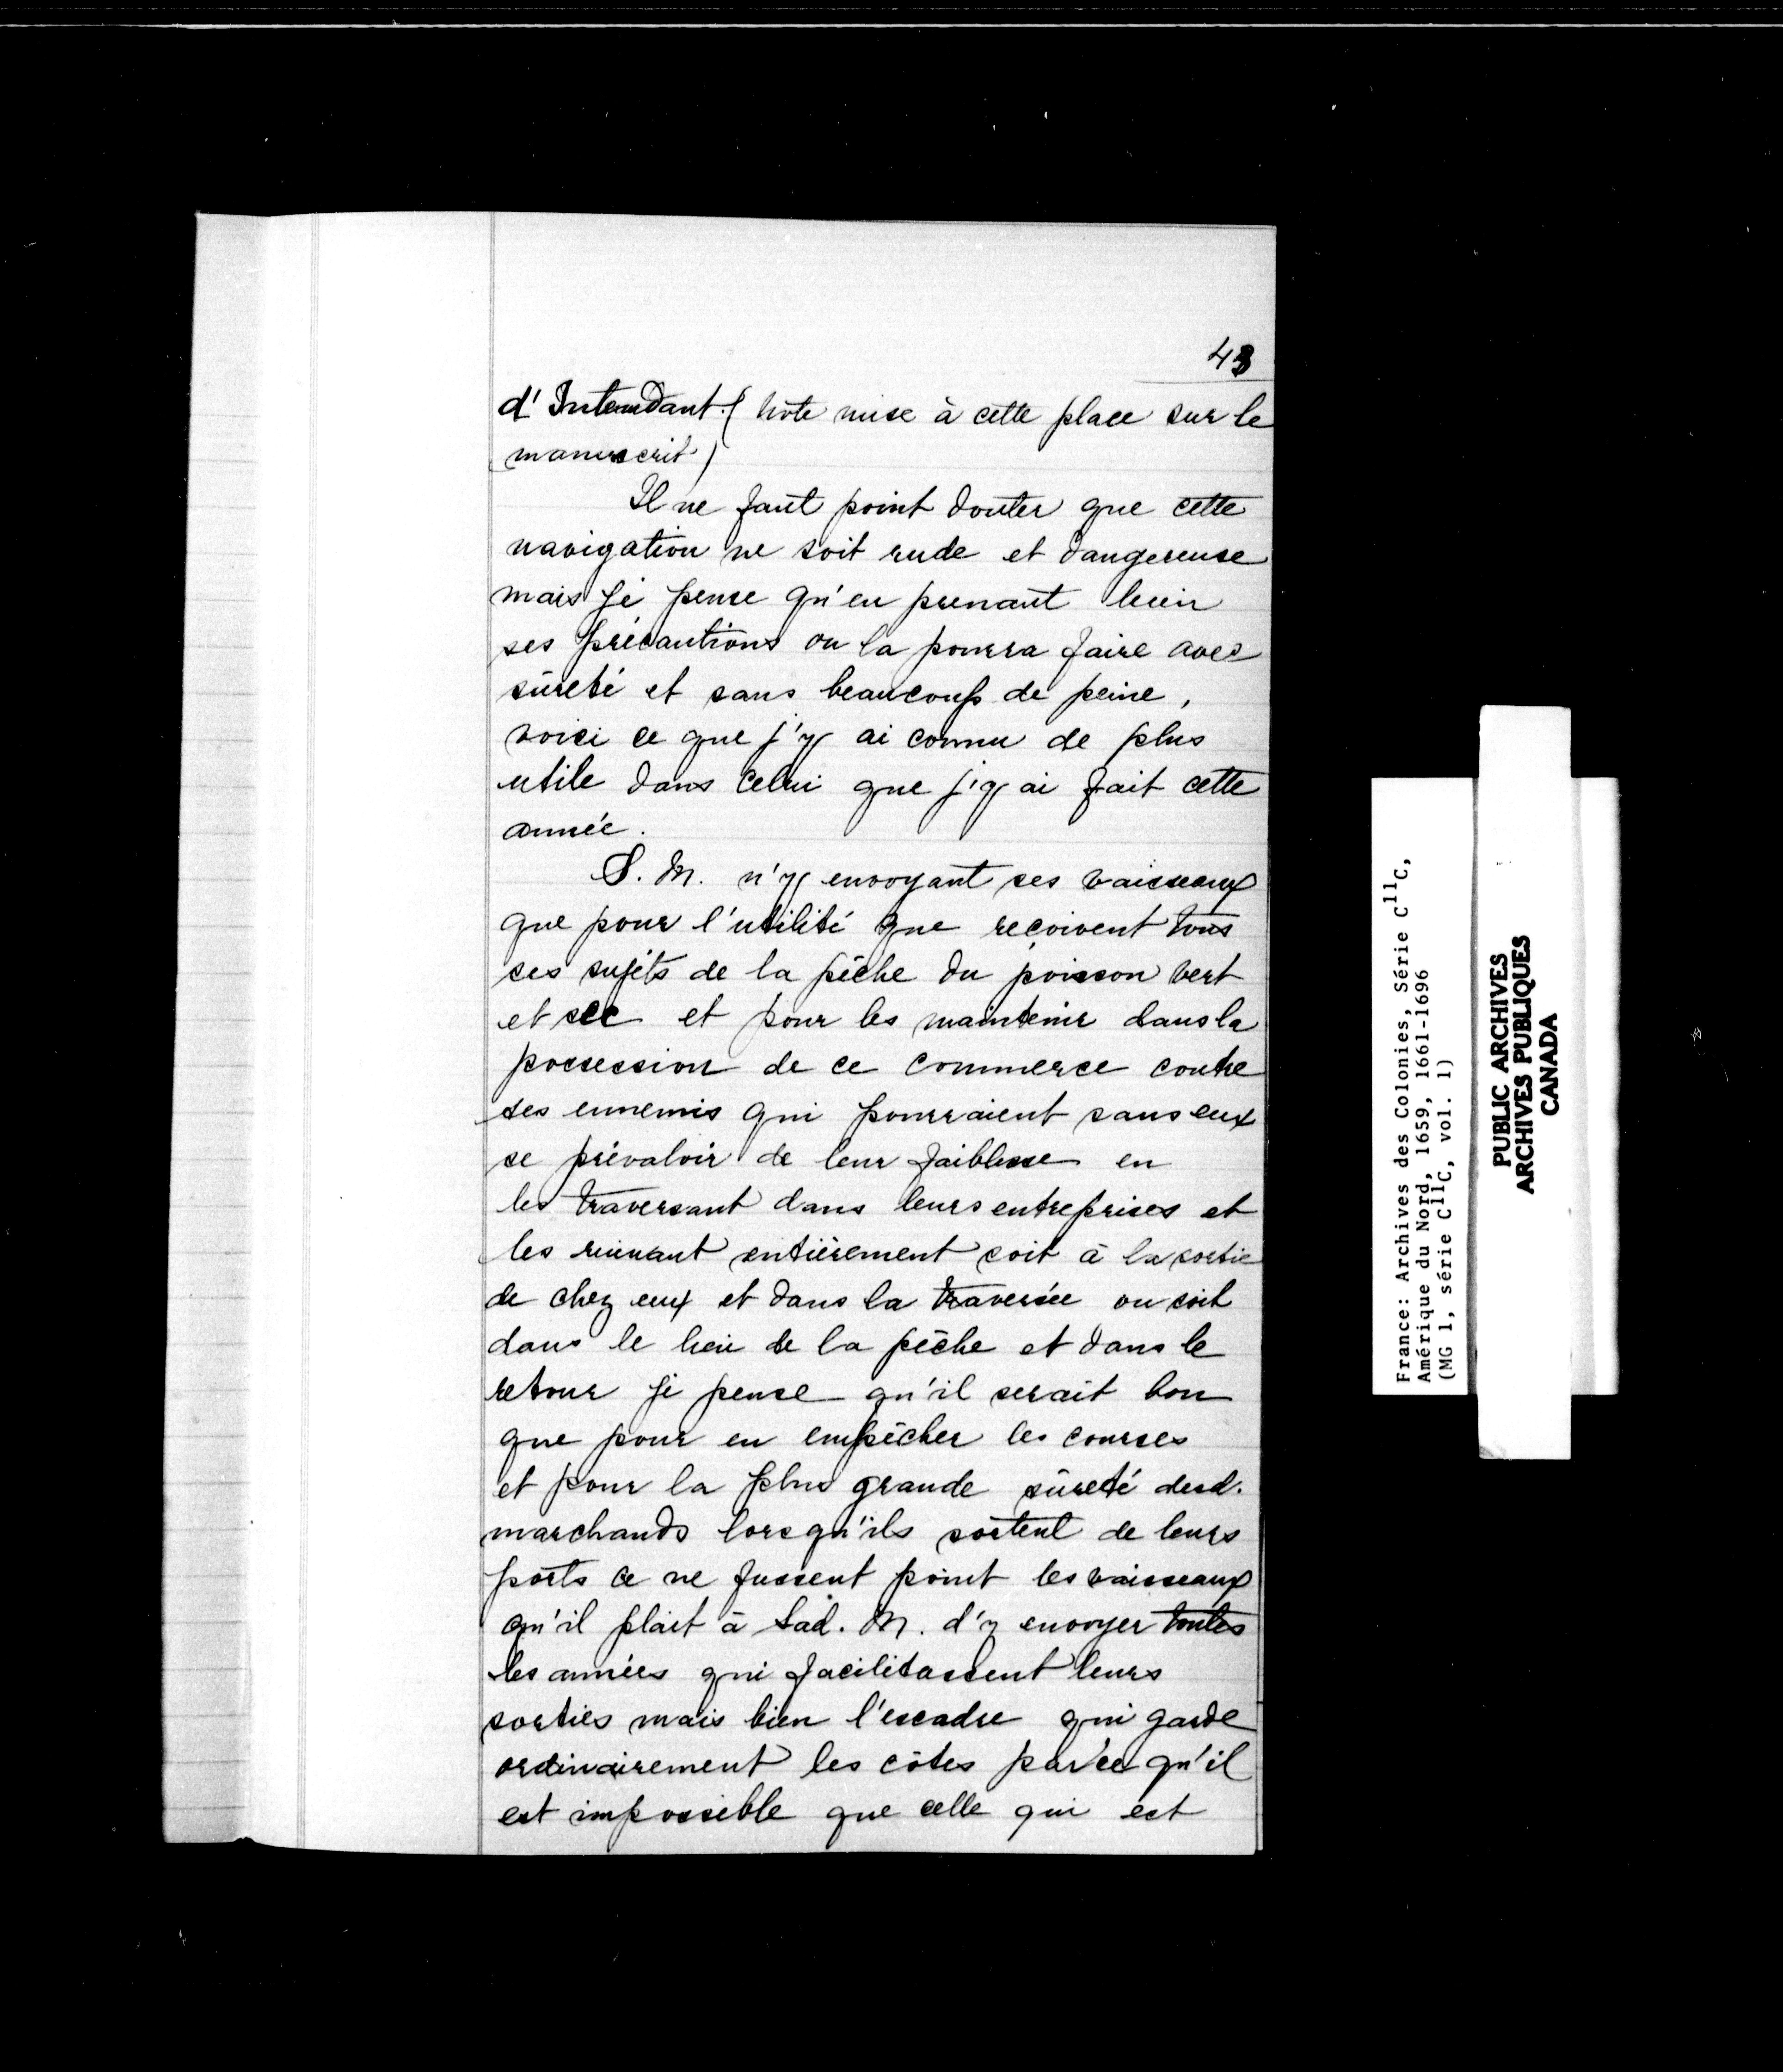 43
d'Intendant. (note mise à cette place sur le
manuscrit)
Il ne faut point douter que cette
navigation ne soit rude et dangereuse
mais je pense qu'en prenant bien
ses précautions on la pourra faire avec
sûreté et sans beaucoup de peine,
voici ce que j'y ai connu de plus
utile dans celui que j'y ai fait cette
année.
S. M. n'y envoyant ses vaisseaux
que pour l'utilité que reçoivent tous
ses sujets de la pêche du poisson vert
et sec et pour les maintenir dans la
possession de ce commerce contre
ses ennemis qui pourraient sans eux
se prévaloir de leur faiblesse en
les traversant dans leurs entreprises et
les ruinant entièrement soit à la sortie
de chez eux et dans la traversée ou soit
dans le lieu de la pêche et dans le
retour je pense qu'il serait bon
que pour en empêcher les courses
et pour la plus grande sûreté desd.
marchands lorsqu'ils sortent de leurs
ports ce ne fussent point les vaisseaux
qu'il plait à Sad. M. d'y envoyer toutes
les années qui facilitassent leurs
sorties mais bien l'escadre qui garde
ordinairement les côtes parce qu'il
est impossible que celle qui est
France: Archives des Colonies, Série C11C,
Amérique du Nord, 1659, 1661-1696
(MG 1, série C11C, vol. 1)
PUBLIC ARCHIVES
ARCHIVES PUBLIQUES
CANADA